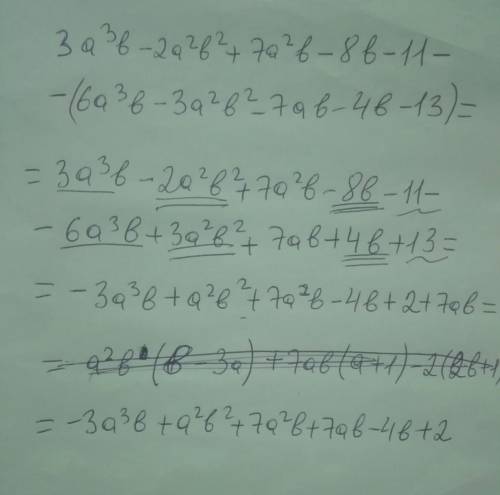 3a³b - 2a²b² + 7a²b - 8b - 11 -
-(6a³b - 3a²b² - 7ab - 4b - 13) =
= 3a³b - 2a²b² + 7a²b - 8b - 11 -
- 6a³b + 3a²b² + 7ab + 4b + 13 =
= -3a³b + a²b² + 7a²b - 4b + 2 + 7ab =
= a²b (b - 3a) + 7ab (a+1) - 2(2b+1
= -3a³b + a²b² + 7a²b + 7ab - 4b + 2